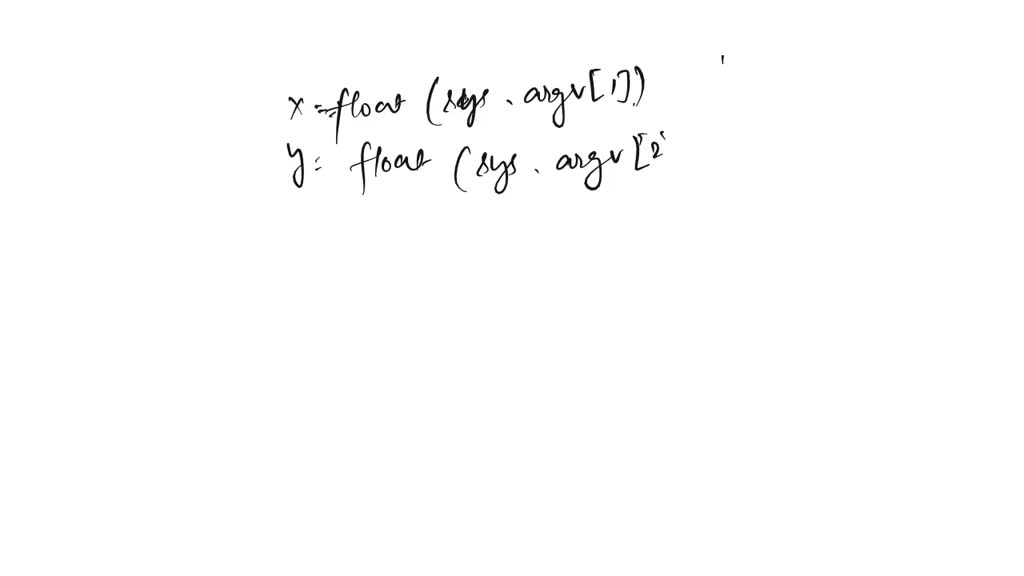 x=float (sys . argv[1])
y= float (sys . argv[2